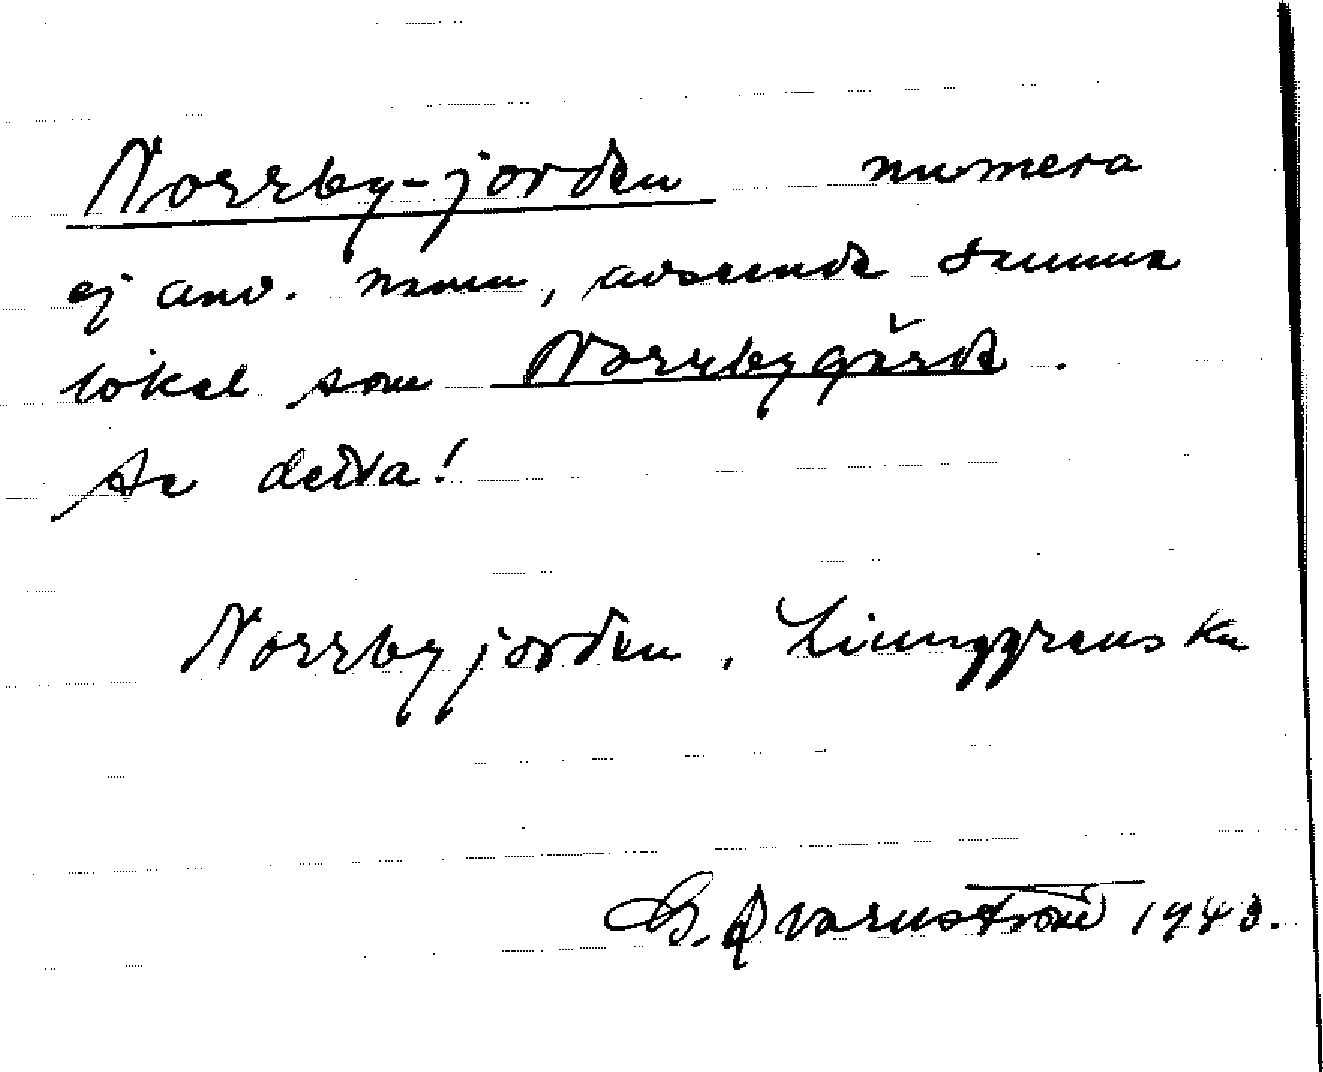 Norrby-jorden numera
ej anv. namn, avseende samma
lokal som Norrbygärde.
Se detta!
Norrbyjorden, Ljunggrenska
G. Qvarnström 1943.